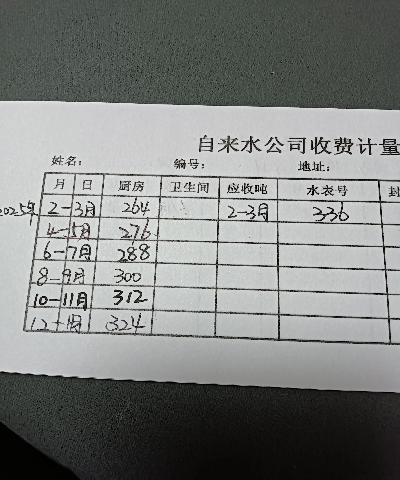 自来水公司收费计量
姓名： 编号： 地址：
月 日 厨房 卫生间 应收吨 水表号 封
2025年 2-3月 264 2-3月 336
4-5月 276
6-7月 288
8-9月 300
10-11月 312
12-1月 324